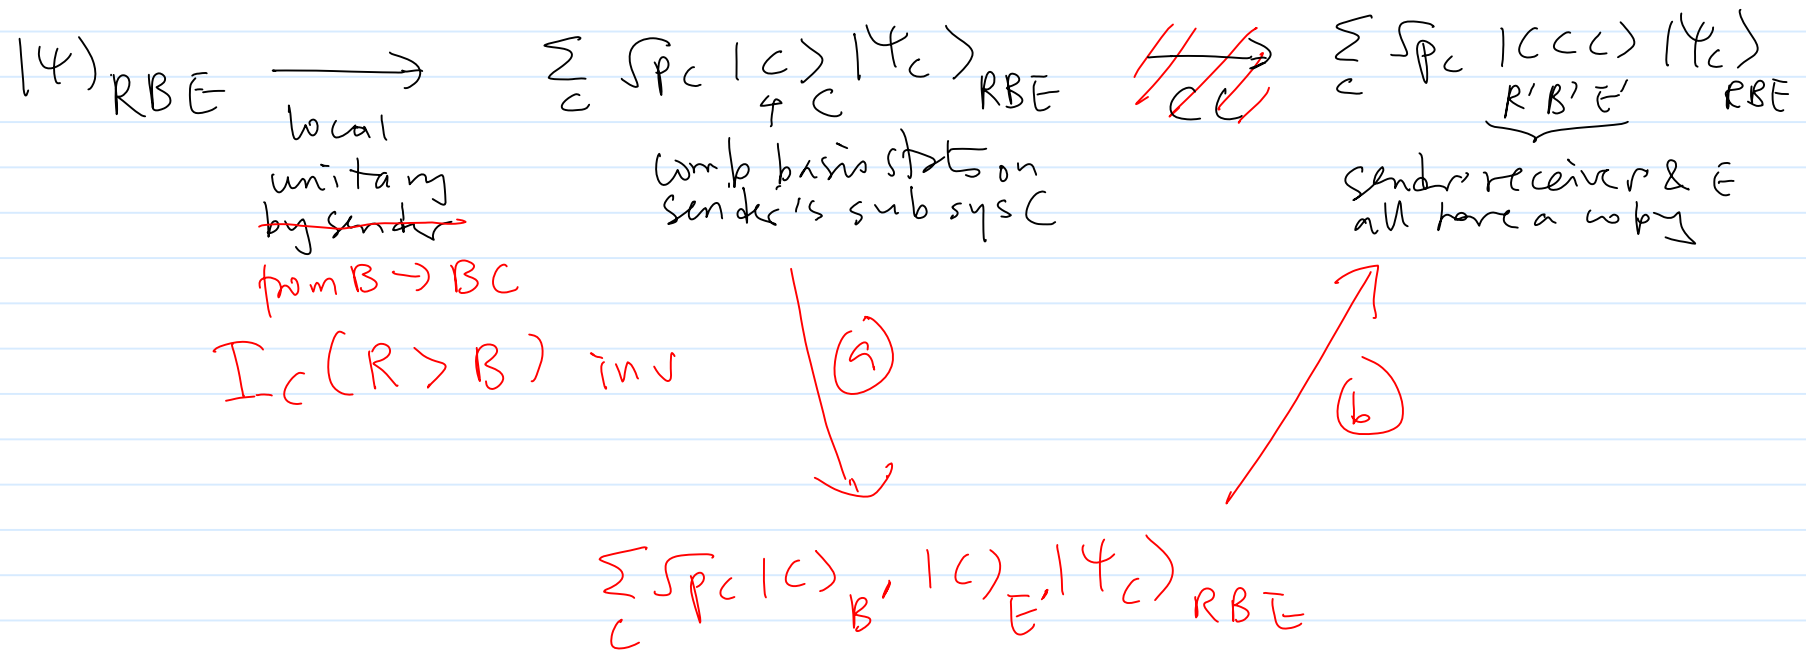 |ψ⟩_{RBE} ⟶ Σ_c √p_c |c⟩_C |ψ_c⟩_{RBE} ⟶ Σ_c √p_c |ccc⟩_{R'B'E'} |ψ_c⟩_{RBE}
local
unitary
by sender
from B → BC
CC
comp basis states on
sender's subsys C
sender receiver & E
all have a copy
I_C (R > B) inv
a
b
Σ_c √p_c |c⟩_{B'} |c⟩_{E'} |ψ_c⟩_{RBE}